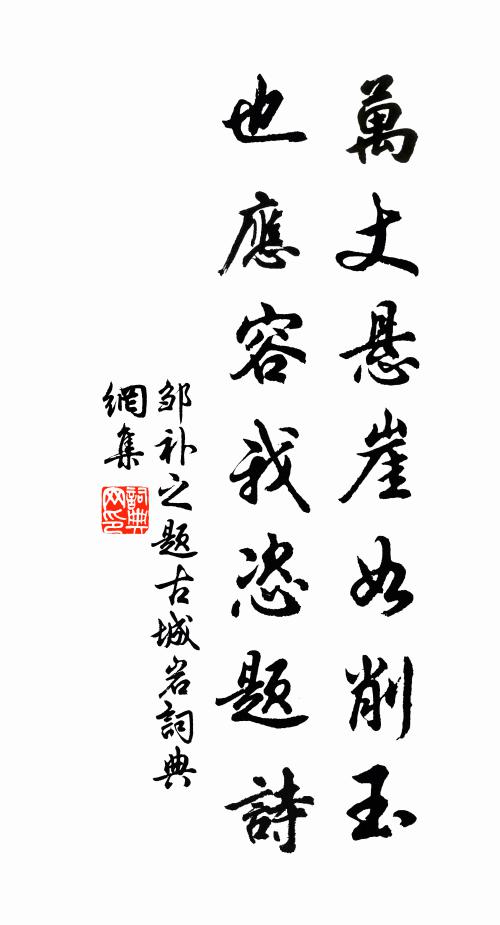 萬丈悬崖如削玉
也應容我恣題詩
邹补之题古城岩詞典
網集
詞典網印